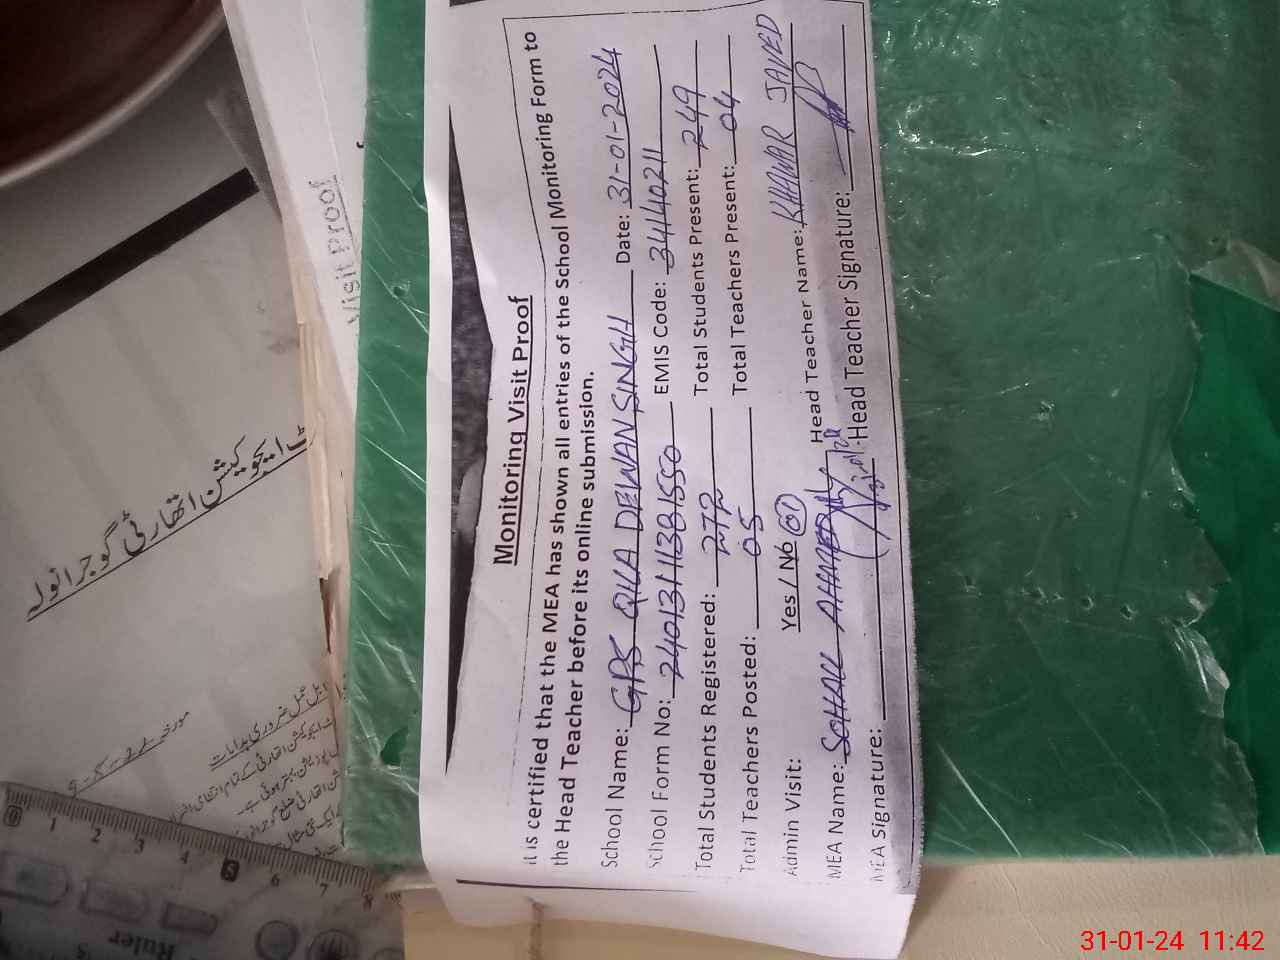 Monitoring Visit Proof
It is certified that the MEA has shown all entries of the School Monitoring Form to
the Head Teacher before its online submission.
School Name: GPS QILA DEWAN SINGH Date: 31-01-2024
School Form No: EMIS Code: 34140211
Total Students Registered: 272 Total Students Present: 249
Total Teachers Posted: 05 Total Teachers Present: 04
Admin Visit: Yes / No 01
MEA Name: SOHAIL AHMED Head Teacher Name: KHAWAR JAVED
MEA Signature: Head Teacher Signature:
Visit Proof
ایجوکیشن اتھارٹی گوجرانوالہ
مورخہ
ضروری ہدایات
0 1 2 3 4 5 6 7 8
Ruler
31-01-24 11:42